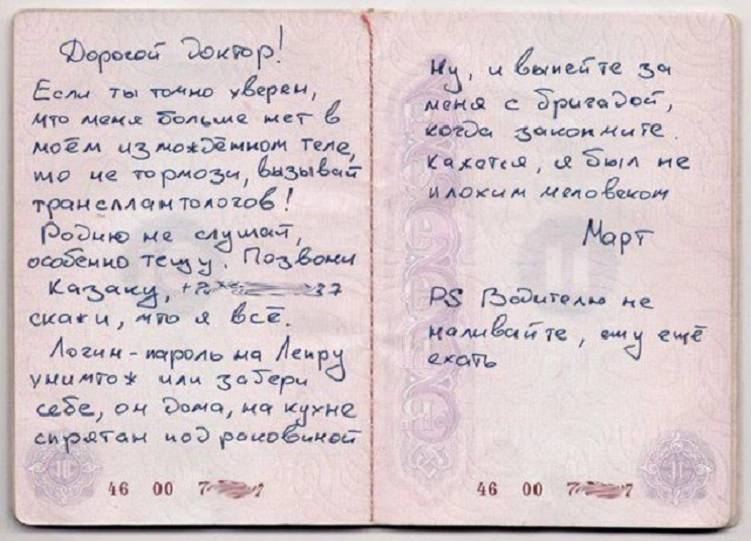 Дорогой Доктор!
Если ты точно уверен,
что меня больше нет в
моём измождённом теле,
то не тормози, вызывай
трансплантологов!
Родню не слушай,
особенно тещу. Позвони
Казаку, +7 37
скажи, что я всё.
Логин-пароль на Лепру
уничтож или забери
себе, он дома, на кухне
спрятан под раковиной
46 00 7 7
Ну, и выпейте за
меня с бригадой,
когда закончите.
Кажется, я был не
плохим человеком
Март
PS Водителю не
наливайте, ему ещё
ехать
46 00 7 7